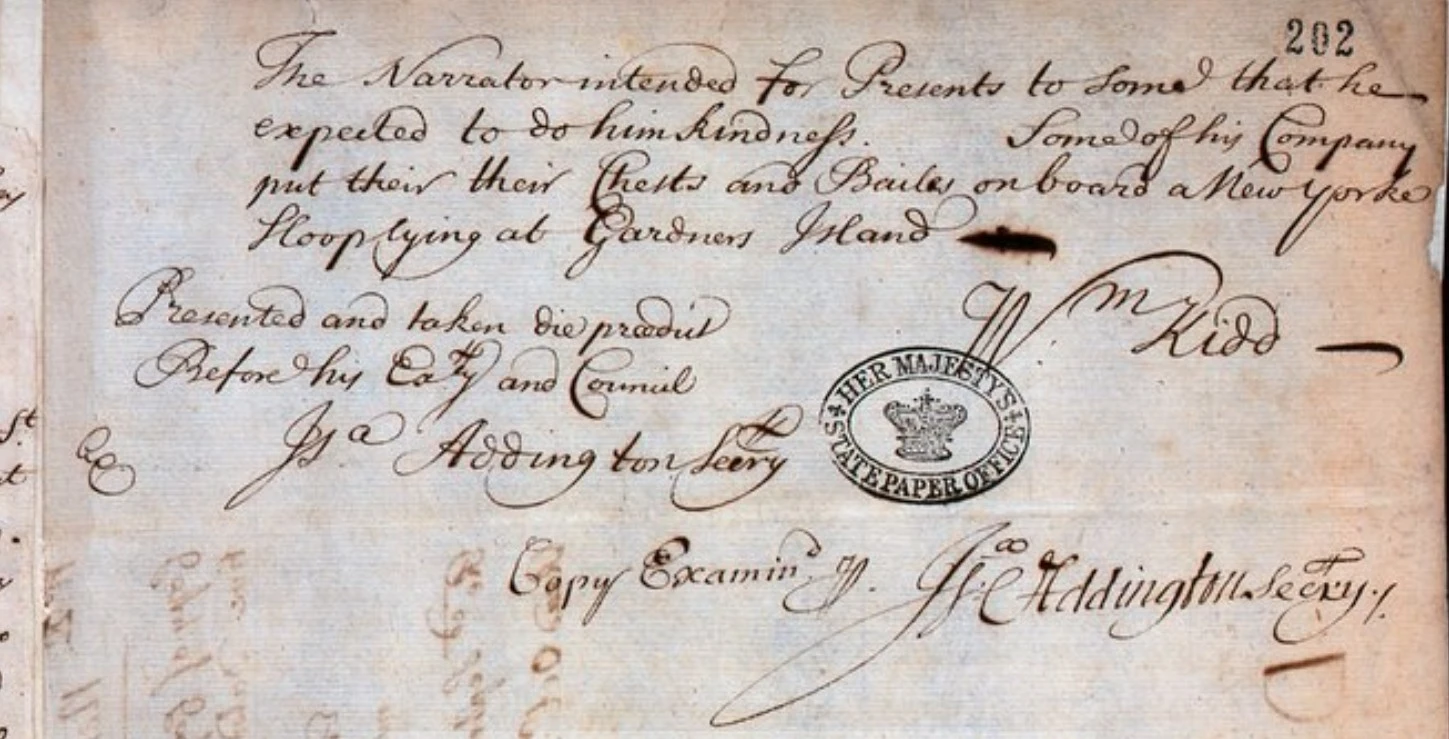 202
The Narrator intended for Presents to some that he
expected to do him kindness. Some of his Company
put their their Chests and Bailes on board a New Yorke
Sloop lying at Gardners Island
Wm Kidd
Presented and taken die prædict
Before his Exty and Council
Isa Addington Secry
HER MAJESTY'S STATE PAPER OFFICE
Copy Examind p. Isa Addington Secry.